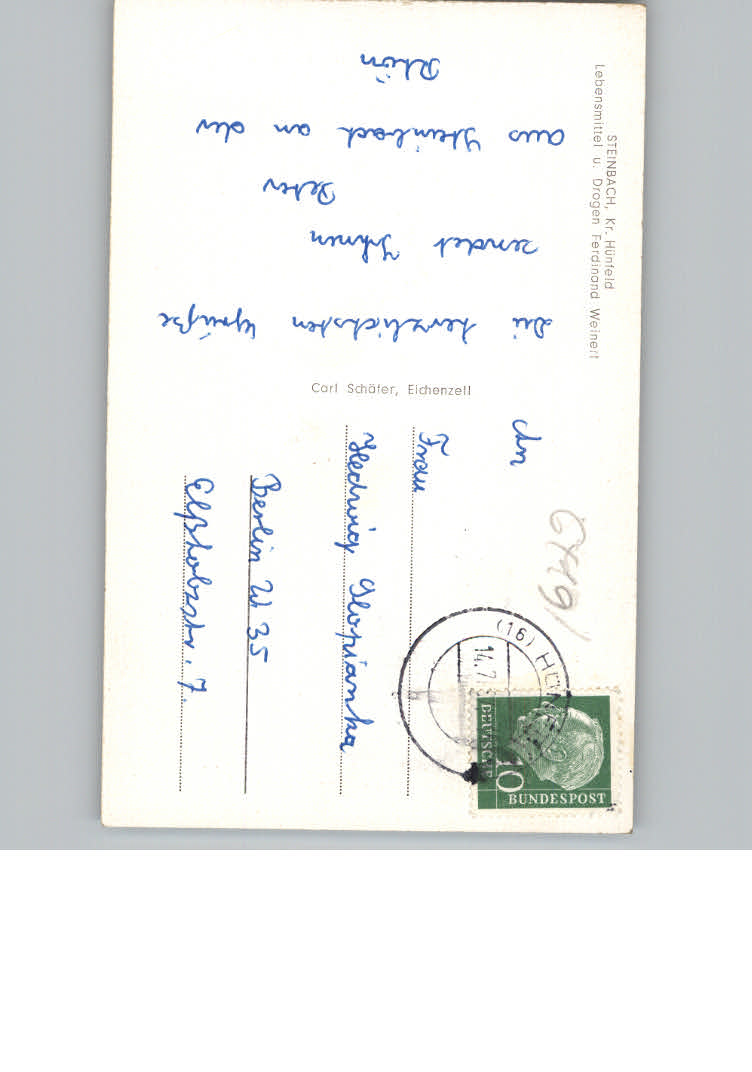 STEINBACH, Kr. Hünfeld
Lebensmittel u. Drogen Ferdinand Weinert
Die herzlichsten Grüße
sendet Ihnen
Peter
aus Steinbach an der
Rhön
Carl Schäfer, Eichenzell
An
Frau
Hedwig Slopianka
Berlin W 35
Elßholzstr. 7.
(16) HÜNF
14.7.
DEUTSCHE
BUNDESPOST
10